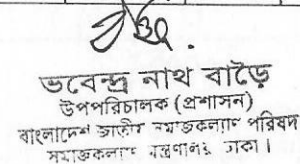 ভবেন্দ্র নাথ বাড়ৈ
উপপরিচালক (প্রশাসন)
বাংলাদেশ জাতীয় সমাজকল্যাণ পরিষদ
সমাজকল্যাণ মন্ত্রণালয় ঢাকা।